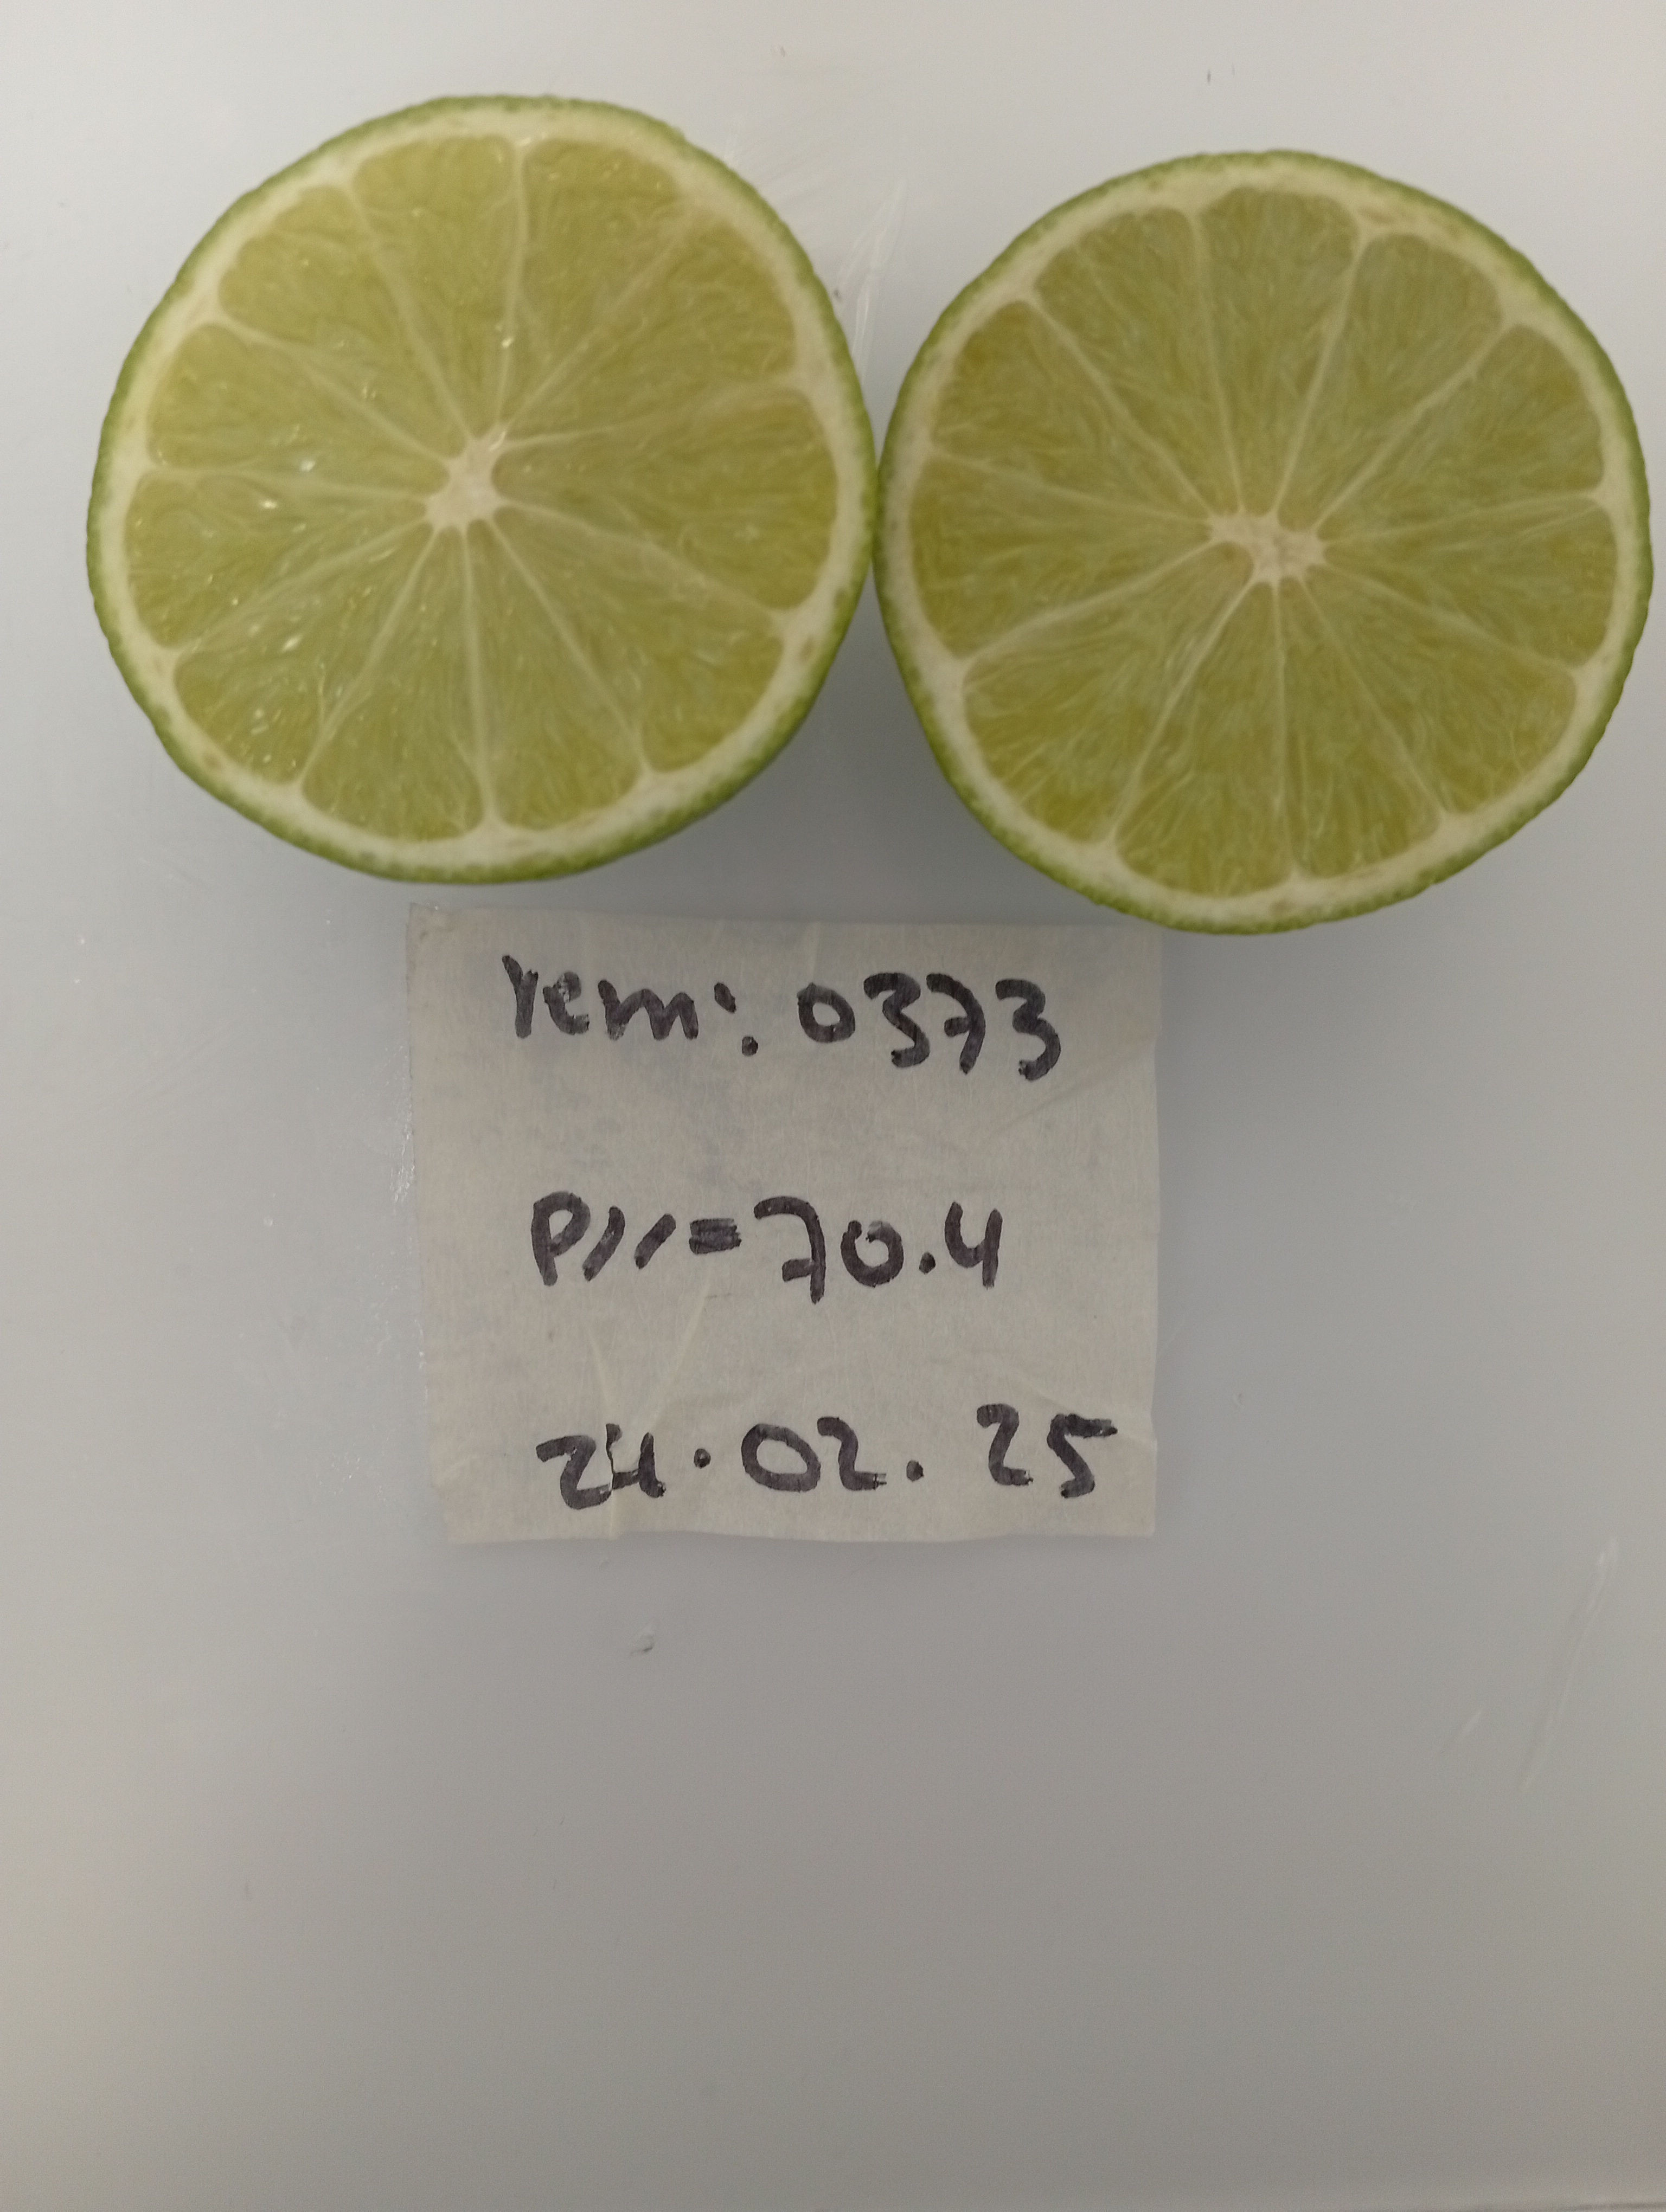 rem: 0373
P// = 70.4
24.02.25